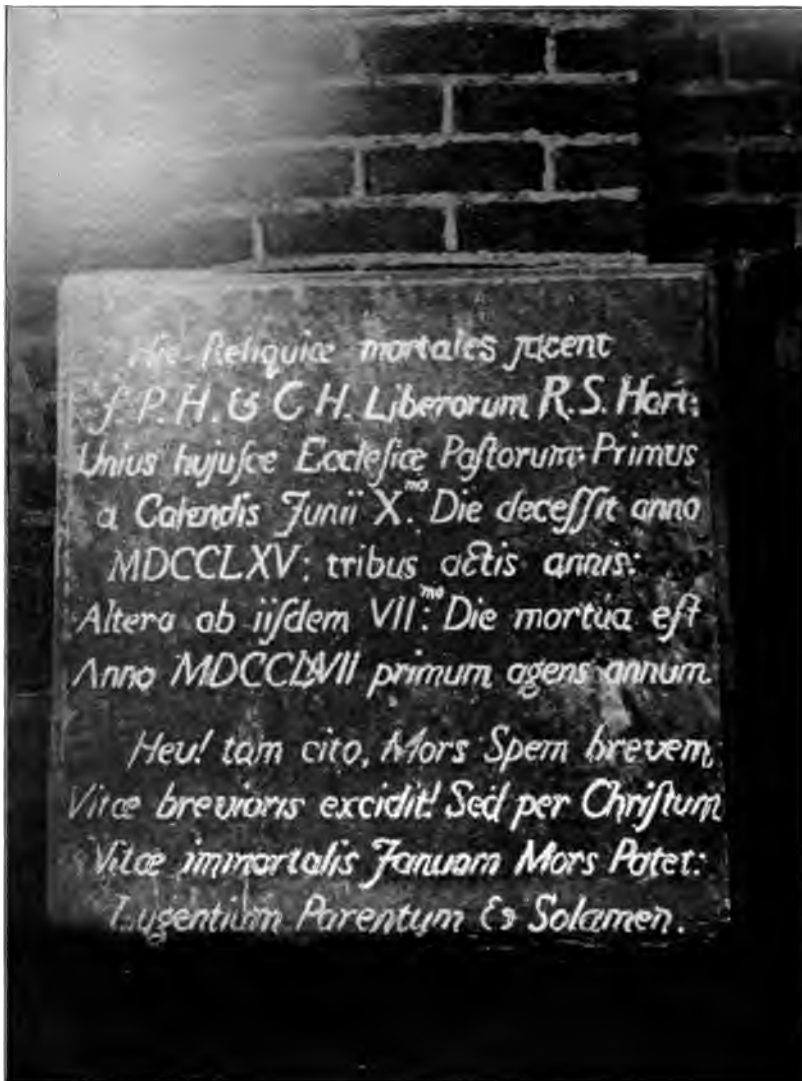 Hic Reliquiæ mortales jacent
ſ P. H. & C H. Liberorum R. S. Hart:
Unius hujuſce Eccleſiæ Paſtorum: Primus
a Calendis Junii X.mo Die deceſſit anno
MDCCLXV; tribus actis annis:
Altera ab iiſdem VII.mo Die mortua eſt
Anno MDCCLXVII primum agens annum.
Heu! tam cito, Mors Spem brevem
Vitæ brevioris excidit! Sed per Chriſtum
Vitæ immortalis Januam Mors Patet:
Lugentium Parentum & Solamen.